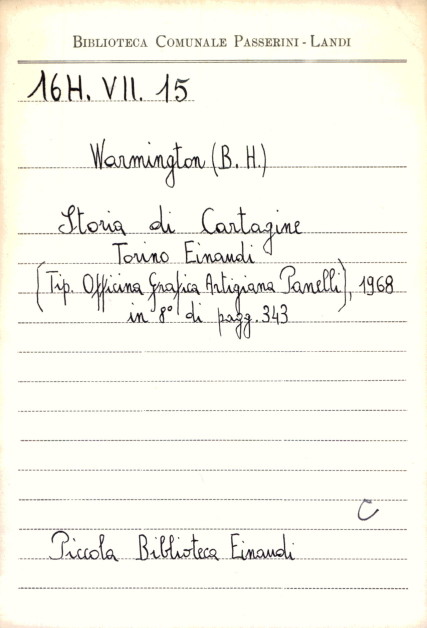 BIBLIOTECA COMUNALE PASSERINI - LANDI
16H. VII. 15
Warmington (B. H.)
Storia di Cartagine
Torino Einaudi
(Tip. Officina Grafica Artigiana Panelli), 1968
in 8° di pagg. 343
C
Piccola Biblioteca Einaudi